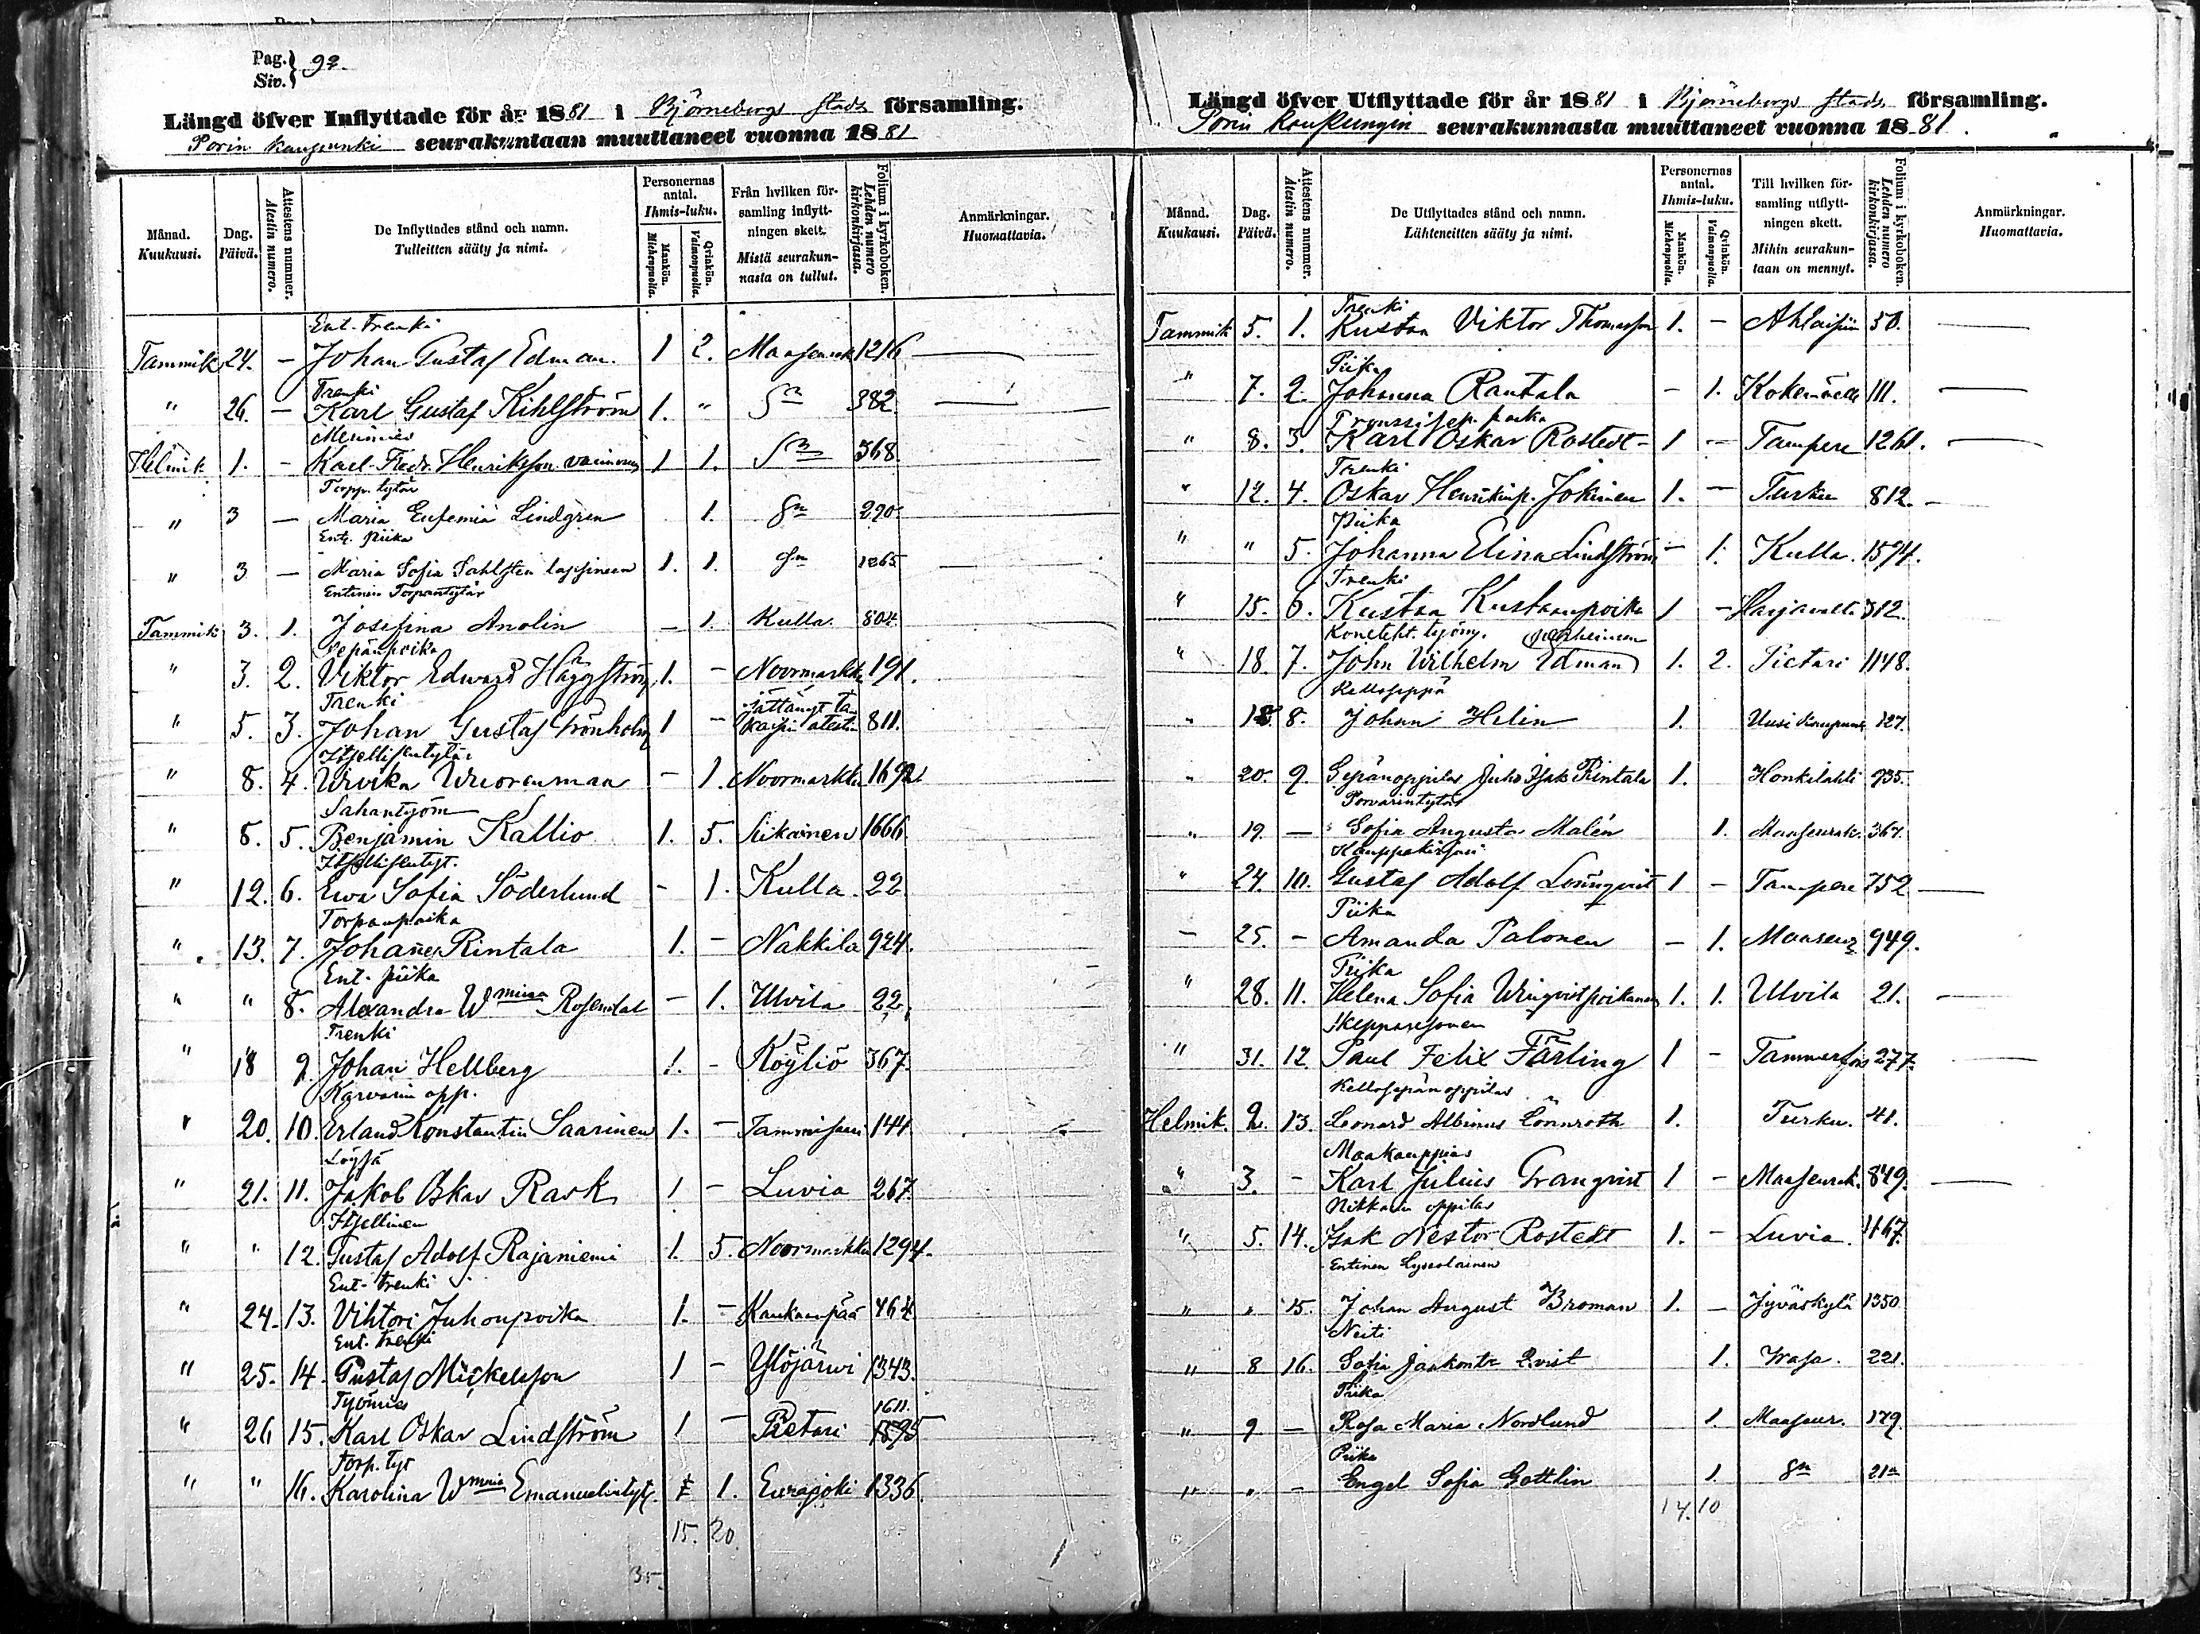 Pag. Siv. } 92.
Längd öfver Inflyttade för år 1881 i Björneborgs stads församling.
Porin kaupunki seurakuntaan muuttaneet vuonna 1881
Månad. Kuukausi.
Dag. Päivä.
Attestens nummer. Atestin numero.
De Inflyttades stånd och namn. Tulleitten sääty ja nimi.
Personernas antal. Ihmis-luku.
Mankön. Miehenpuolia.
Qvinkön. Vaimonpuolia.
Från hvilken församling inflyttningen skett. Mistä seurakunnasta on tullut.
Folium i kyrkoboken. Lehden numero kirkonkirjassa.
Anmärkningar. Huomattavia.
Ent. trenki
Tammik 24. — Johan Gustaf Edman. 1 2. Maaseurak 1216 —
Trenki
" 26. — Karl Gustaf Kihlström 1. " Sn 382 —
Merimies
Helmik 1. — Karl Fredr. Henriksson vaimoneen 1 1. Sn 368.
Torpp. tytär
" 3 — Maria Eufemia Lindgren 1. Sn 290.
Ent. piika
" 3 — Maria Sofia Sahlsten lapsineen 1. 1. Sn 1265
Entinen Torparitytär
Tammik 3. 1. Josefina Anolin — 1. Kulla 804.
Sepänpoika
" 3. 2. Viktor Edward Häggström 1. — Noormarkku 191.
Trenki
" 5. 3. Johan Gustaf Grönholm 1 — 811.
Itsellisentytär
" 8. 4. Ulrika Wuorenmaa — 1. Noormarkku 1692
Sahantyöm
" 8. 5. Benjamin Kallio 1. 5. Siikainen 1666
Itsellisentyt.
" 12. 6. Ewa Sofia Söderlund - 1. Kulla 22
Torpanpoika
" 13. 7. Johannes Rintala 1. — Nakkila 924.
Ent. piika
" " 8. Alexandra Wmiina Rosendal — 1. Ulvila 22
Trenki
" 18 9. Johan Hellberg 1. - Köyliö 367.
Karvarin opp.
" 20. 10. Erland Konstantin Saarinen 1. — Tammisaari 144.
Löysä
" 21. 11. Jakob Oskar Rask 1 — Luvia 267.
Itsellinen
" " 12. Gustaf Adolf Rajaniemi 1. 5. Noormarkku 1294.
Ent. trenki
" 24. 13. Vihtori Juhonpoika 1. — Kankaanpää 464.
Ent. trenki
" 25. 14. Gustaf Mickelsson 1 — Ylöjärwi 1343.
Työmies 1611.
" 26 15. Karl Oskar Lindström 1 — Pietari 1595
Torp. tyt
" " 16. Karolina Wmiina Emanuelintyt. 1. Eurajoki 1336.
15. 20.
35.
Längd öfver Utflyttade för år 1881 i Björneborgs stads församling.
Porin kaupungin seurakunnasta muuttaneet vuonna 1881.
Månad. Kuukausi.
Dag. Päivä.
Attestens nummer. Atestin numero.
De Utflyttades stånd och namn. Lähteneitten sääty ja nimi.
Personernas antal. Ihmis-luku.
Mankön. Miehenpuolia.
Qvinkön. Vaimonpuolia.
Till hvilken församling utflyttningen skett. Mihin seurakuntaan on mennyt.
Folium i kyrkoboken. Lehden numero kirkonkirjassa.
Anmärkningar. Huomattavia.
Trenki
Tammik 5. 1. Kustaa Viktor Thomasson 1. — Ahlaisiin 50. —
Piika
" 7. 2. Johanna Rantala — 1. 111. —
" 8. 3. Karl Oskar Rostedt 1 — Tampere 1261. —
Trenki
" 12. 4. Oskar Henrikinp. Jokinen 1. — Turku 812. —
Piika
" " 5. Johanna Elina Lindström — 1. Kulla. 1594.
Trenki
" 15. 6. Kustaa Kustaanpoika 1 — Harjavalta 312.
" 18. 7. John Wilhelm Edman 1. 2. Pietari 1148.
Kelloseppä
" 18. 8. Johan Helin 1. Uusikaupunki 127.
" 20. 9. Sepänoppilas Juho Isak Rintala 1. Honkilahti 935.
Porvarintytär
" 19. — Sofia Augusta Malén 1. Maaseurak. 367.
" 24. 10. Gustaf Adolf Lönnqvist 1 — Tampere 752 —
Piika
— 25. — Amanda Palonen — 1. Maaseur 949.
Piika
" 28. 11. Helena Sofia Winqvist poikaneen 1. 1. Ulvila 21. —
" 31. 12. Paul Felix Färling 1 - Tammerfors 277. —
Kellosepänoppilas
Helmik. 2. 13. Leonard Albinus Lönnroth 1. Turku. 41.
Maakauppias
" 3. — Karl Julius Granqvist 1 — Maaseurak. 849. —
Nikkarin oppilas
" 5. 14. Isak Nestor Rostedt 1. — Luvia. 1167.
Entinen Lyseolainen
" " 15. Johan August Broman 1. — Jyväskylä 1350
Neiti
" 8 16. Sofia 1. Wasa. 221.
Piika
" 9 — Rosa Maria Nordlund 1. Maaseur. 179.
Piika
" " — Engel Sofia Gottlin 1. Sn 21
14. 10